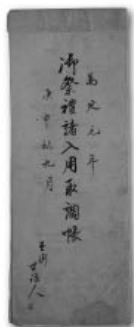 萬延元年
御祭禮諸入用取調帳
庚申秋九月
世話人